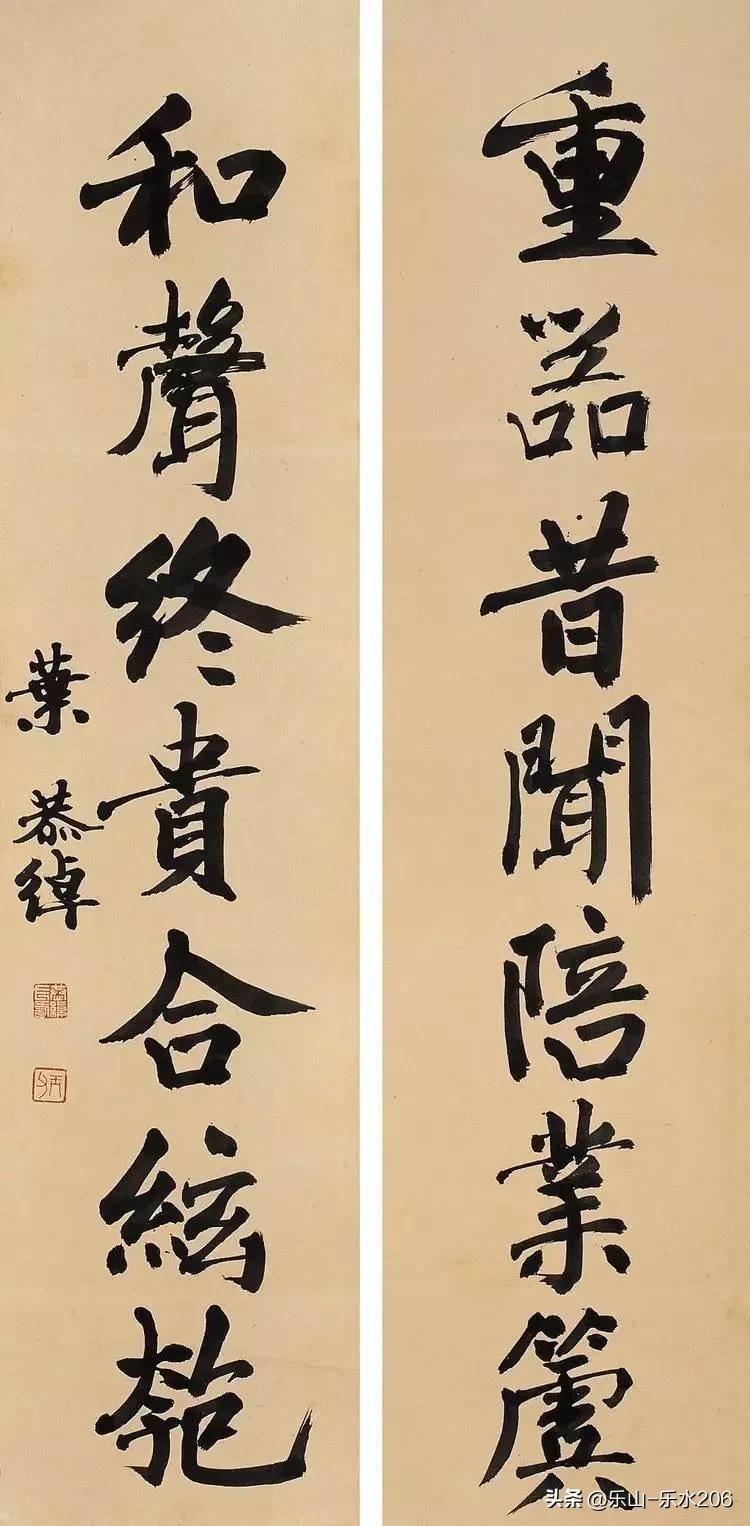 重器昔聞陪業簴
和聲終貴合絃匏
葉恭綽
头条 @乐山-乐水206